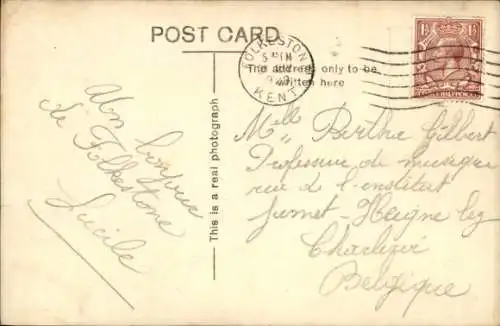 POST CARD
FOLKESTONE
KENT
The address only to be
written here
1½ 1½
This is a real photograph
Un bonjour
de Folkestone
Lucile
Melle Berthe Gilbert
Professeur de musique
rue de l'institut
Jumet-Heigne lez
Charleroi
Belgique